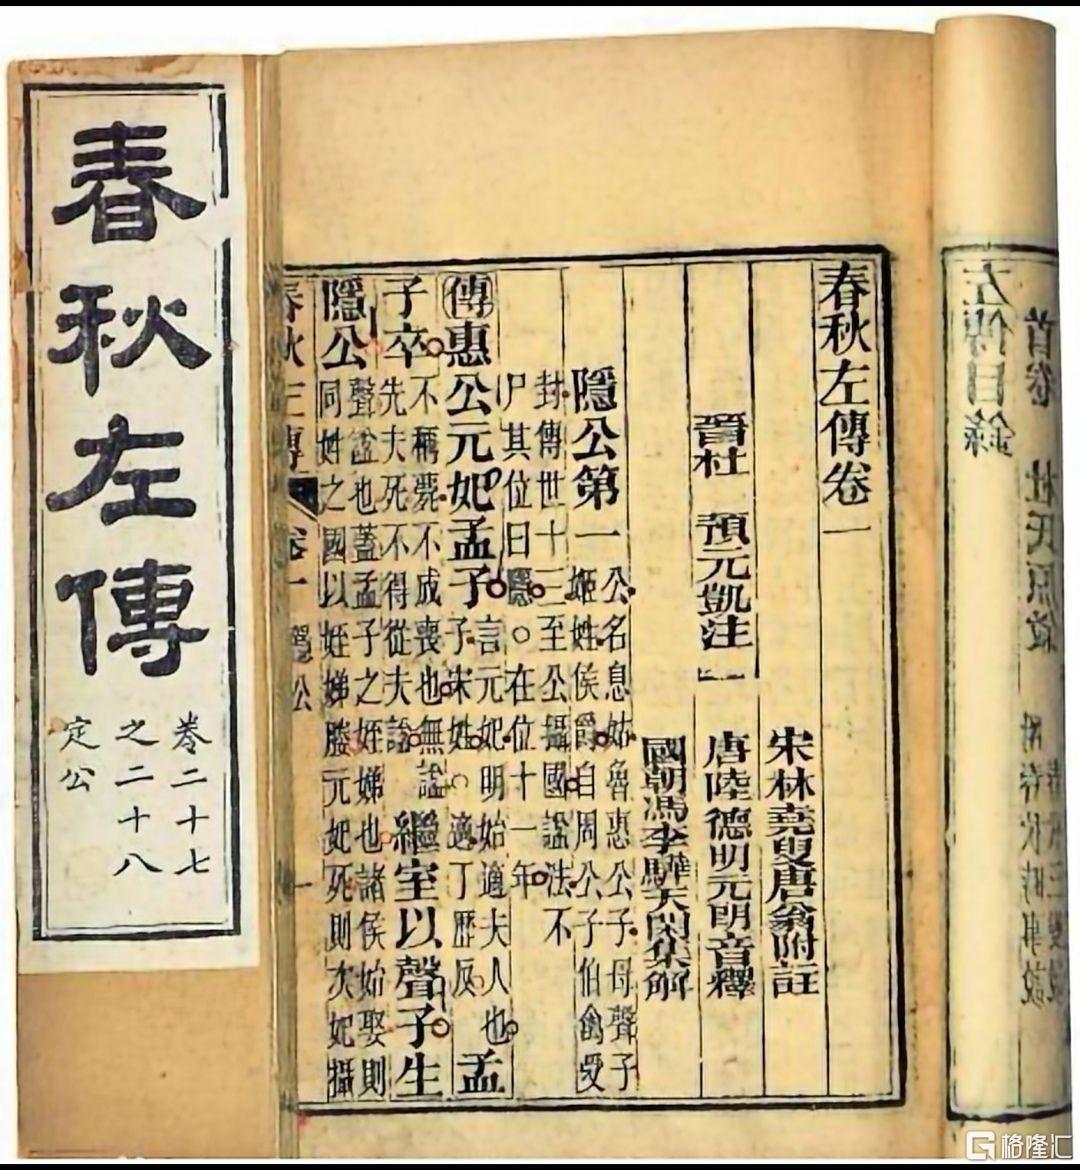 春秋左傳
卷二十七
之二十八
定公
首卷 杜氏原敘
左傳目錄
春秋左傳卷一
宋林堯叟唐翁附註
晉杜 預元凱注
唐陸德明元明音釋
國朝馮李驊天閑集解
隱公第一 公名息姑魯惠公子母聲子
姬姓侯爵自周公子伯禽受
封傳世十三至公攝國諡法不
尸其位曰隱○在位十一年
傳惠公元妃孟子 言元妃明始適夫人也 子宋姓○適丁歷反 孟
子卒 不稱薨不成喪也無諡 先夫死不得從夫諡 繼室以聲子生
隱公 聲諡也蓋孟子之姪娣也諸侯始娶則 同姓之國以姪娣媵元妃死則次妃攝
卷一 隱公 一
格隆汇